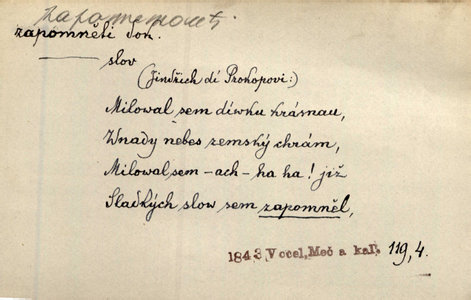 zapomenouti
zapomněti dok.
slov
(Jindřich dí Prokopovi:)
Milowal sem díwku krásnau,
Wnady nebes zemský chrám,
Milowal sem – ach – ha ha! již
Sladkých slow sem zapomněl,
1843 Vocel, Meč a kal. 119,4.